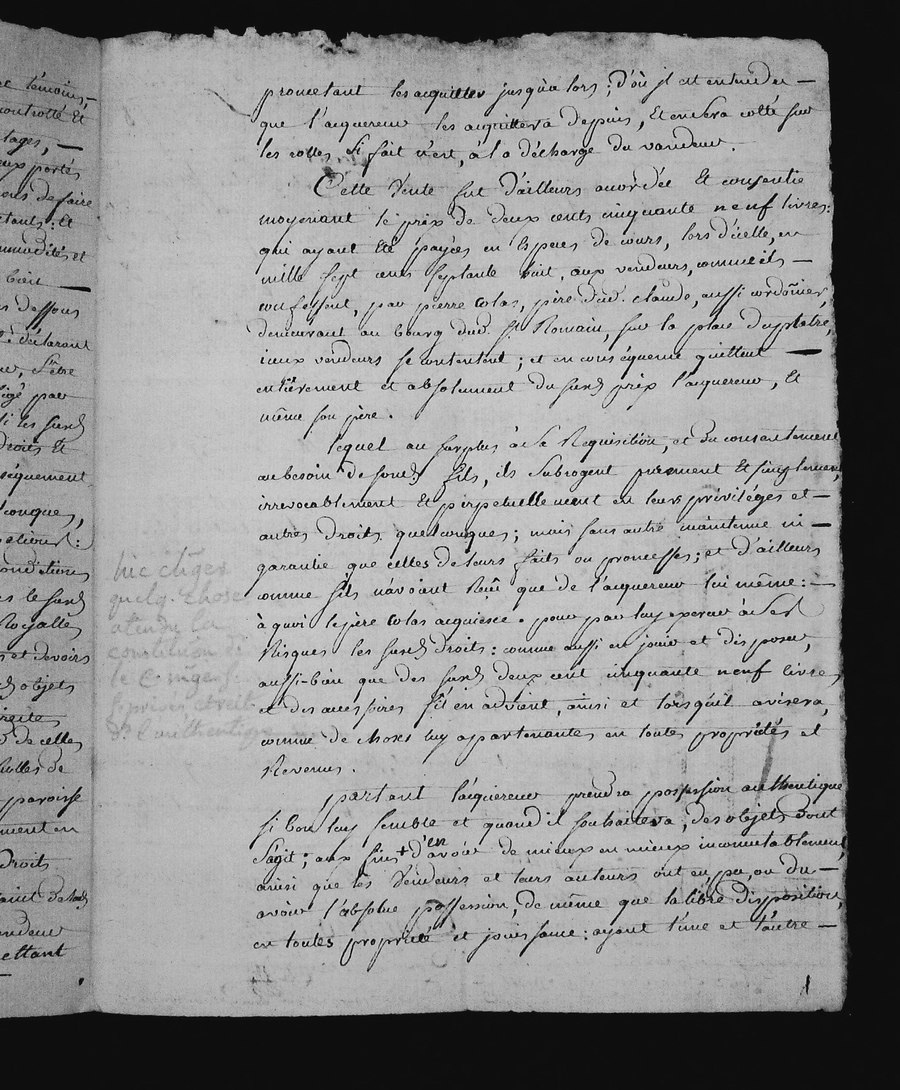 et témoins,
controllé Et
tages, —
eux portés
ons de faire
tants : Et
mmodités et
bien —
s dessous
déclarant
s'être
par
si les susd.
Droits Et
séquemment
conques,
Conditions
es le susd.
Royalles
s et devoirs
objets
Droites
de celles
Rolles de
paroisse
ment en
Droits
vendeur
ettant
promettant les acquitter jusqu'a lors ; d'où jl est entendu —
que l'acquereur les acquittera depuis, Et en sera cotté sur
les rolles, si fait n'est, à la décharge du vendeur.
Cette Vente fut d'ailleurs accordée Et consentie
moyenant le prix de deux cents cinquante neuf livres :
qui ayant Eté payées en Especes de cours, lors d'icelle, en
mille sept cens septante huit, aux vendeurs, comme ils —
confessent, par pierre Colas, père dud. claude, aussi cordonier,
demeurant au bourg dud. St. Romain, sur la place du plâtre,
iceux vendeurs se contentent ; et en conséquence quittent —
entièrement et absolument du susd. prix l'acquereur, Et
même son père.
lequel au surplus à sa Requisition, et du consentement
au besoin de sond. fils, ils subrogent purement Et simplement,
irrevocablement Et perpetuellement en leurs priviléges et —
autres Droits quelconques ; mais sans autre maintenue ni —
garantie que celles de leurs faits ou promesses ; et d'ailleurs
comme s'ils n'avoient Reçu que de l'acquereur lui même : —
à quoi le père Colas acquiesce. pour par luy exercer à ses
Risques les susd. Droits : comme aussi en jouir et disposer,
aussi-bien que des susd. deux cent cinquante neuf livres,
et des accessoires s'il en advient, ainsi et lorsqu'il avisera,
comme de choses luy appartenantes en toutes propriétés et
Revenus.
partant l'acquereur prendra possession authentique
si bon luy semble et quand il souhaitera, des objets dont
s'agit ; aux fins + d'en avoir de mieux en mieux incomutablement,
ainsi que les Vendeurs et leurs auteurs ont eu, pu, ou du —
avoir l'absolue possession, de même que la libre disposition,
en toutes propriété et jouissance : ayant l'une et l'autre —
quelq. chose
atendu la
constitution de
l'authentique
1